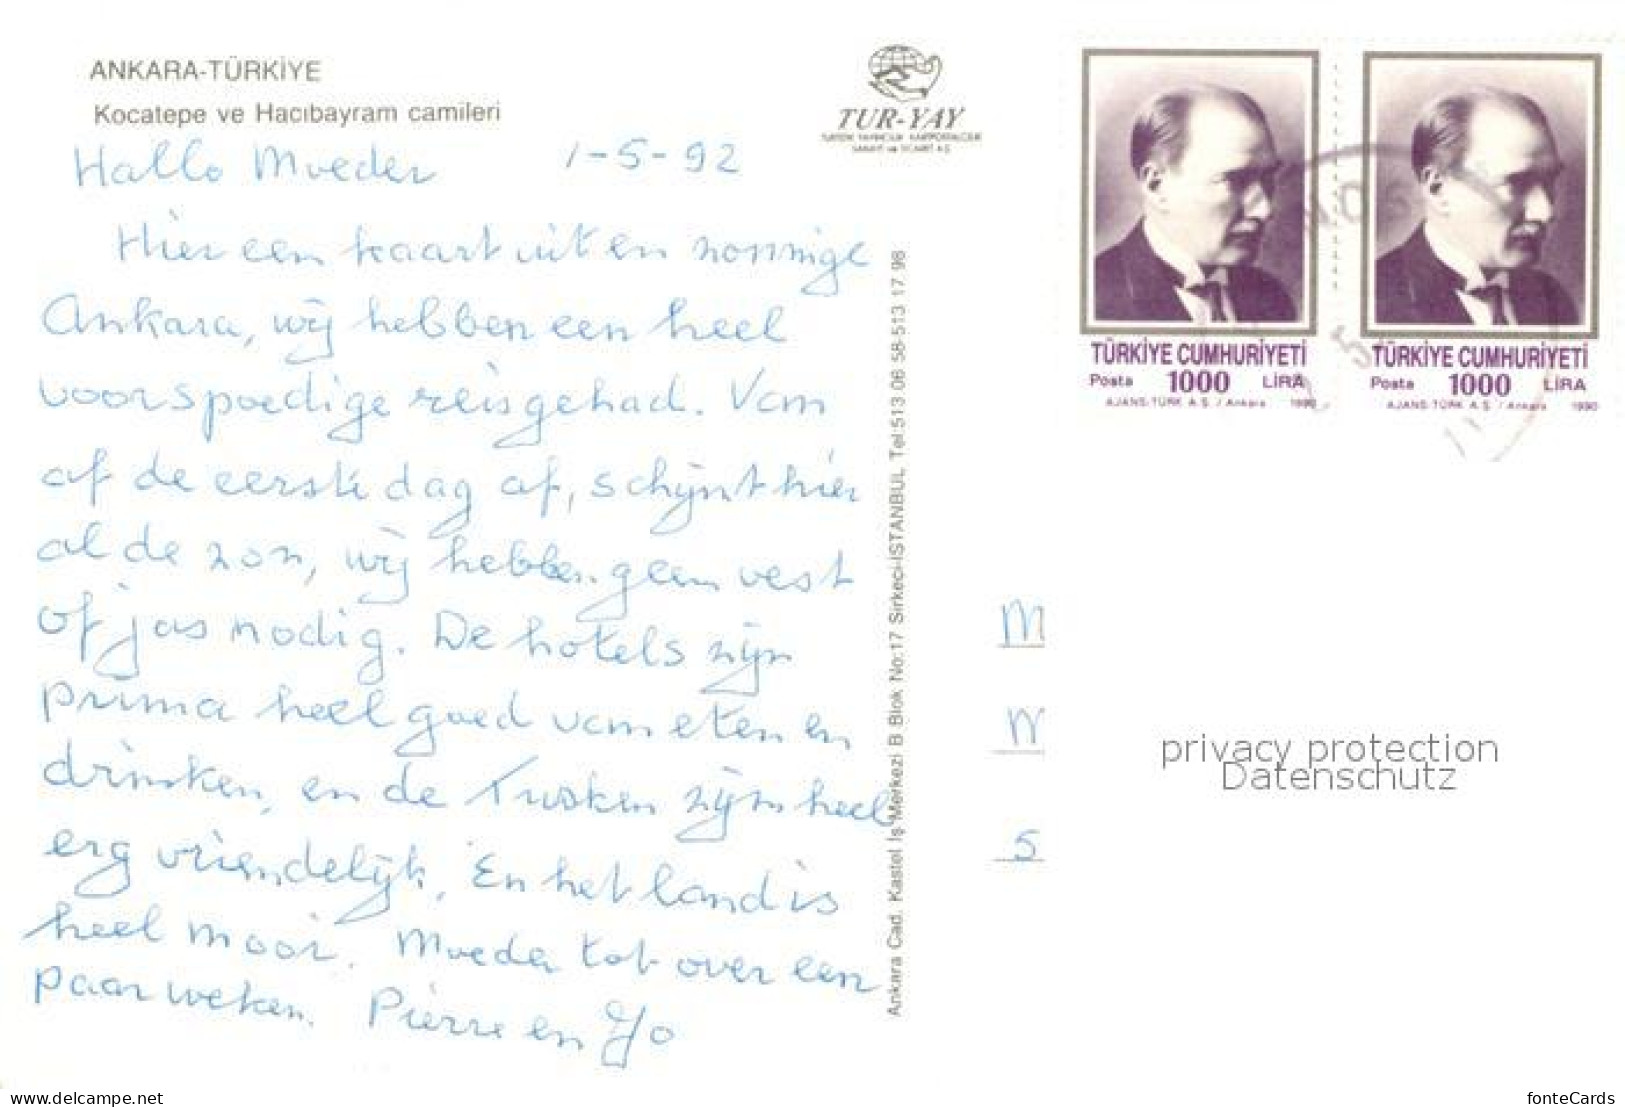 ANKARA-TÜRKİYE
Kocatepe ve Hacıbayram camileri
TUR-YAY
Hallo Moeder 1-5-92
Hier een kaart uit en zonnige
Ankara, wij hebben een heel
voorspoedige reis gehad. Van
af de eerste dag af, schijnt hier
al de zon, wij hebben geen vest
of jas nodig. De hotels zijn
prima heel goed van eten en
drinken, en de Turken zijn heel
erg vriendelijk. En het land is
heel mooi. Moeder tot over een
paar weken. Pierre en Jo
Ankara Cad. Kastel İş Merkezi B Blok No:17 Sirkeci-İSTANBUL Tel:513 06 58-513 17 98
TÜRKİYE CUMHURİYETİ
Posta 1000 LİRA
AJANS-TÜRK A.Ş. / Ankara 1990
TÜRKİYE CUMHURİYETİ
Posta 1000 LİRA
AJANS-TÜRK A.Ş. / Ankara 1990
M
N
5
privacy protection
Datenschutz
www.delcampe.net
fonteCards